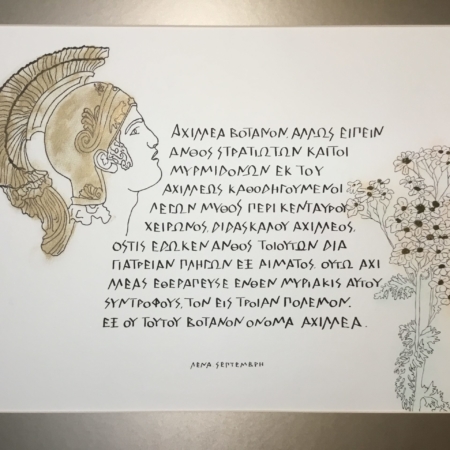 ΑΧΙΛΛΕΑ ΒΟΤΑΝΟΝ, ΑΛΛΩΣ ΕΙΠΕΙΝ
ΑΝΘΟΣ ΣΤΡΑΤΙΩΤΩΝ ΚΑΙ ΤΟΙ
ΜΥΡΜΙΔΟΝΩΝ ΕΚ ΤΟΥ
ΑΧΙΛΛΕΩΣ ΚΑΘΟΔΗΓΟΥΜΕΝΟΙ.
ΛΕΓΩΝ ΜΥΘΟΣ ΠΕΡΙ ΚΕΝΤΑΥΡΟΥ
ΧΕΙΡΩΝΟΣ, ΔΙΔΑΣΚΑΛΟΥ ΑΧΙΛΛΕΟΣ,
ΟΣΤΙΣ ΕΔΩΚΕΝ ΑΝΘΟΣ ΤΟΙΟΥΤΩΝ ΔΙΑ
ΓΙΑΤΡΕΙΑΝ ΠΛΗΓΩΝ ΕΞ ΑΙΜΑΤΟΣ. ΟΥΤΩ ΑΧΙ
ΛΛΕΑΣ ΕΘΕΡΑΠΕΥΣΕ ΕΝΘΕΝ ΜΥΡΙΑΚΙΣ ΑΥΤΟΥ
ΣΥΝΤΡΟΦΟΥΣ, ΤΟΝ ΕΙΣ ΤΡΟΙΑΝ ΠΟΛΕΜΟΝ.
ΕΞ ΟΥ ΤΟΥΤΟΥ ΒΟΤΑΝΟΝ ΟΝΟΜΑ ΑΧΙΛΛΕΑ.
ΛΕΝΑ ΣΕΡΤΕΜΒΡΗ